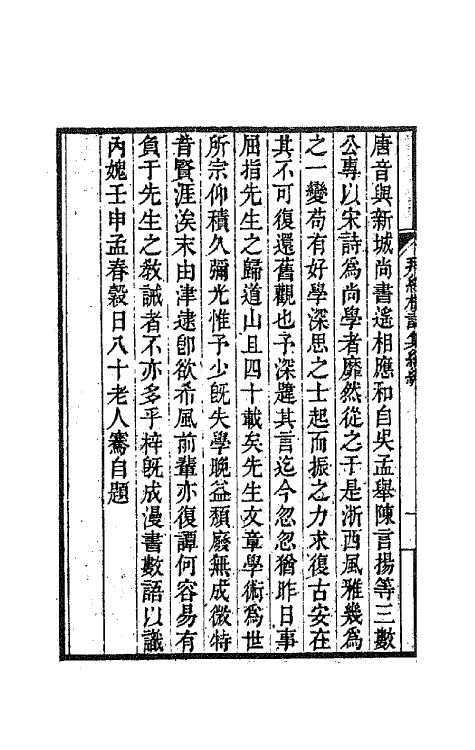 唐音與新城尚書遙相應和自吳孟舉陳言揚等三數
公專以宋詩為尚學者靡然從之于是浙西風雅幾為
之一變苟有好學深思之士起而振之力求復古安在
其不可復還舊觀也予深韙其言迄今忽忽猶昨日事
屈指先生之歸道山且四十載矣先生文章學術為世
所宗仰積久彌光惟予少既失學晚益頹廢無成微特
昔賢涯涘末由津逮卽欲希風前輩亦復譚何容易有
負于先生之敎誡者不亦多乎梓既成漫書數語以識
內媿壬申孟春穀日八十老人騫自題
拜經樓詩集續編
一